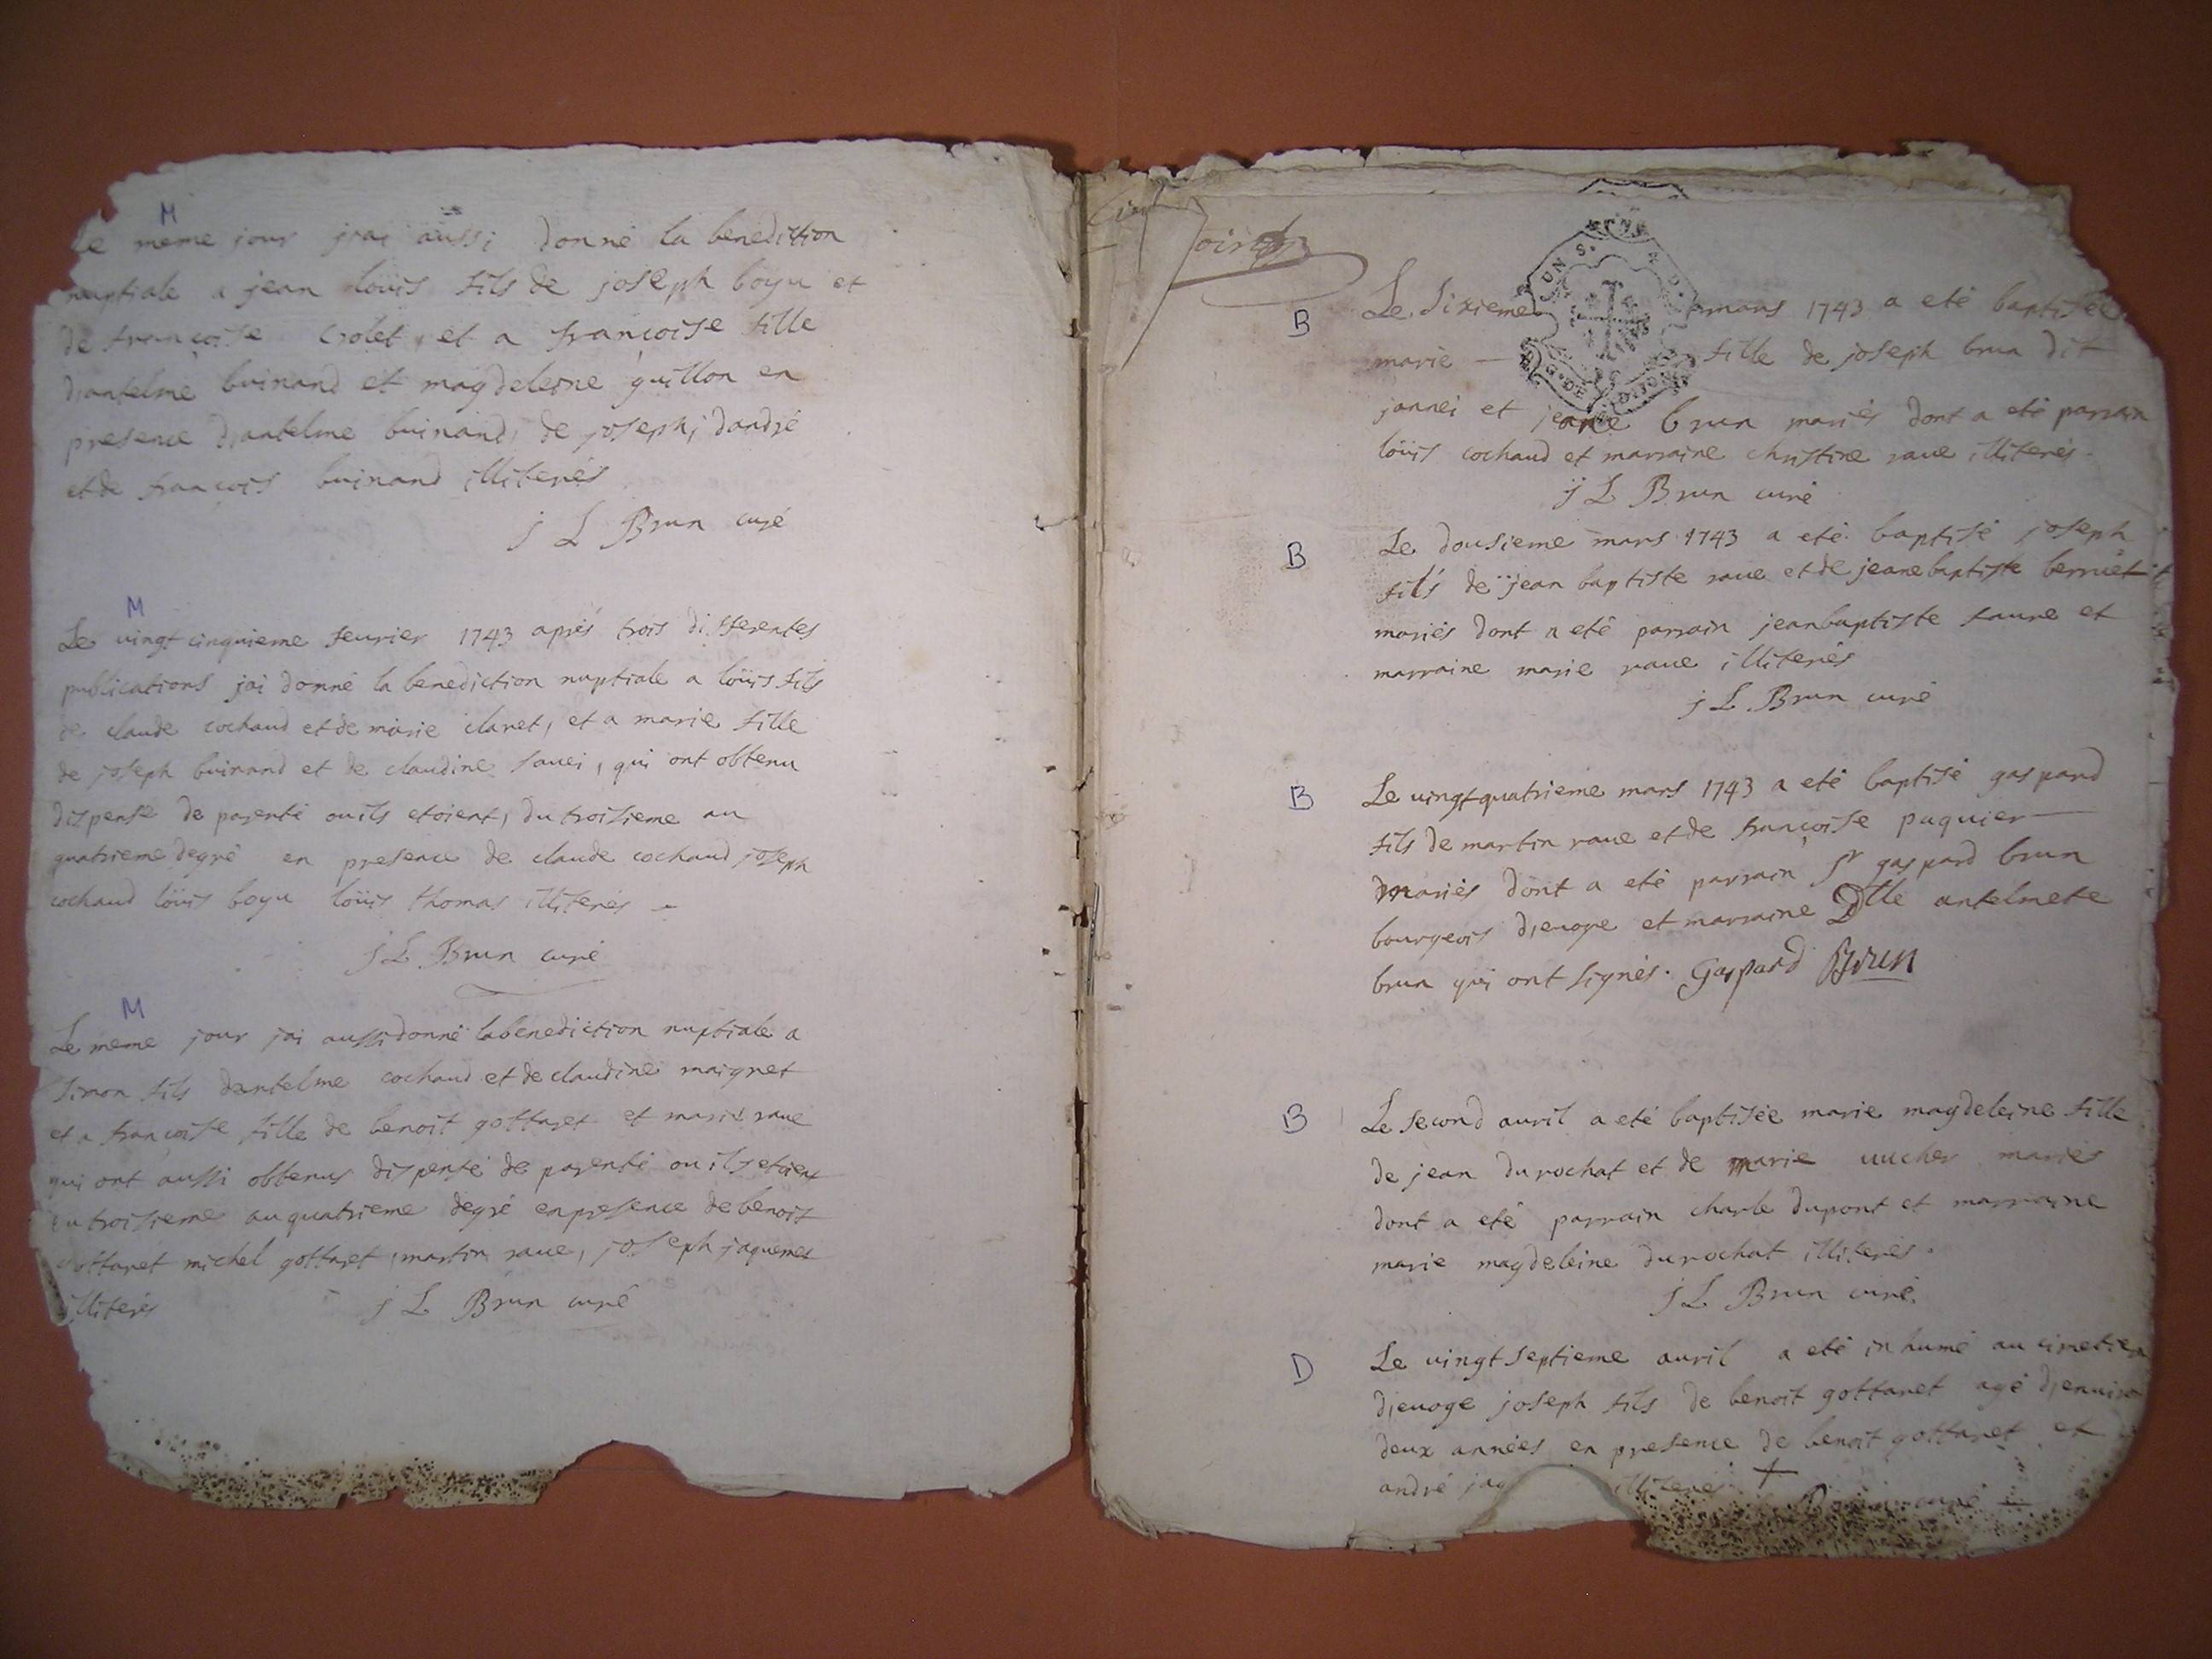 M
Le meme jour jrai aussi donné la benediction
nuptiale a jean loüis fils de joseph boyu et
de françoise Crolet, et a françoise fille
d'antelme buinand et magdeleine guillon en
presence d'antelme buinand, de joseph, d'andré
et de françois buinand illiterés
j L Brun curé
M
Le vingt cinquieme feurier 1743 aprés trois differentes
publications jai donné la benediction nuptiale a loüis fils
de claude cochaud et de marie claret, et a marie fille
de joseph buinand et de claudine sauei, qui ont obtenu
dispense de parenté ou ils etoient, du troisieme au
quatrieme degré en presence de claude cochaud joseph
cochaud loüis boyu loüis thomas illiterés
j L Brun curé
M
Le meme jour jai aussi donné la benediction nuptiale a
simon fils dantelme cochaud et de claudine maignet
et a françoise fille de benoit gottaret et marie raue
qui ont aussi obtenus dispense de parenté ou ils etoient
du troisieme au quatrieme degré en presence de benoit
gottaret michel gottaret, martin raue, joseph jaquemet
illiterés j L Brun curé
B
Le sixieme mars 1743 a eté baptisée
marie fille de joseph brun dit
jannei et jeane brun mariés dont a eté parrain
loüis cochaud et marraine christine raue illiterés.
j L Brun curé
B
Le dousieme mars 1743 a eté baptisé joseph
fils de jean baptiste raue et de jeane baptiste berruet
mariés dont a eté parrain jean baptiste faure et
marraine marie raue illiterés
j L Brun curé
B
Le vingt quatrieme mars 1743 a eté baptisé gaspard
fils de martin raue et de françoise paquier
mariés dont a eté parrain Sr gaspard brun
bourgeois d'jeuoge et marraine Dlle antelmete
brun qui ont signés. Gaspard Brun
B
Le second auril a eté baptisée marie magdeleine fille
de jean du rochat et de marie uucher mariés
dont a eté parrain charle dupont et marraine
marie magdeleine durochat illiterés.
j L Brun curé
D
Le vingt septieme auril a eté inhumé au cimetier
d'jeuoge joseph fils de benoit gottaret agé d'enuiron
deux années en presence de benoit gottaret et
andré jaq illiterés
Brun curé